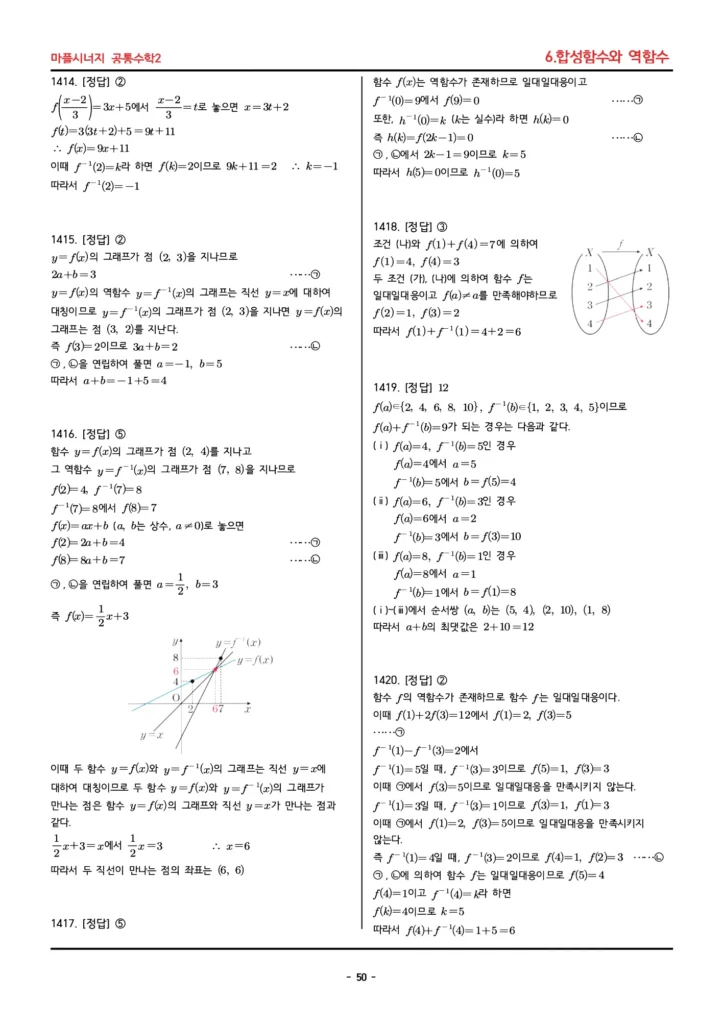 마플시너지 공통수학2
6.합성함수와 역함수
1414. [정답] ②
f((x-2)/3)=3x+5에서 (x-2)/3=t로 놓으면 x=3t+2
f(t)=3(3t+2)+5=9t+11
∴ f(x)=9x+11
이때 f⁻¹(2)=k라 하면 f(k)=2이므로 9k+11=2 ∴ k=-1
따라서 f⁻¹(2)=-1
1415. [정답] ②
y=f(x)의 그래프가 점 (2, 3)을 지나므로
2a+b=3 ······㉠
y=f(x)의 역함수 y=f⁻¹(x)의 그래프는 직선 y=x에 대하여
대칭이므로 y=f⁻¹(x)의 그래프가 점 (2, 3)을 지나면 y=f(x)의
그래프는 점 (3, 2)를 지난다.
즉 f(3)=2이므로 3a+b=2 ······㉡
㉠, ㉡을 연립하여 풀면 a=-1, b=5
따라서 a+b=-1+5=4
1416. [정답] ⑤
함수 y=f(x)의 그래프가 점 (2, 4)를 지나고
그 역함수 y=f⁻¹(x)의 그래프가 점 (7, 8)을 지나므로
f(2)=4, f⁻¹(7)=8
f⁻¹(7)=8에서 f(8)=7
f(x)=ax+b (a, b는 상수, a≠0)로 놓으면
f(2)=2a+b=4 ······㉠
f(8)=8a+b=7 ······㉡
㉠, ㉡을 연립하여 풀면 a=1/2, b=3
즉 f(x)=1/2x+3
y y=f⁻¹(x)
8 y=f(x)
6
4
O
2 6 7 x
y=x
이때 두 함수 y=f(x)와 y=f⁻¹(x)의 그래프는 직선 y=x에
대하여 대칭이므로 두 함수 y=f(x)와 y=f⁻¹(x)의 그래프가
만나는 점은 함수 y=f(x)의 그래프와 직선 y=x가 만나는 점과
같다.
1/2x+3=x에서 1/2x=3 ∴ x=6
따라서 두 직선이 만나는 점의 좌표는 (6, 6)
1417. [정답] ⑤
함수 f(x)는 역함수가 존재하므로 일대일대응이고
f⁻¹(0)=9에서 f(9)=0 ······㉠
또한, h⁻¹(0)=k (k는 실수)라 하면 h(k)=0
즉 h(k)=f(2k-1)=0 ······㉡
㉠, ㉡에서 2k-1=9이므로 k=5
따라서 h(5)=0이므로 h⁻¹(0)=5
1418. [정답] ③
조건 (나)와 f(1)+f(4)=7에 의하여
f(1)=4, f(4)=3
두 조건 (가), (나)에 의하여 함수 f는
일대일대응이고 f(a)≠a를 만족해야하므로
f(2)=1, f(3)=2
따라서 f(1)+f⁻¹(1)=4+2=6
f
X X
1 1
2 2
3 3
4 4
1419. [정답] 12
f(a)∈{2, 4, 6, 8, 10}, f⁻¹(b)∈{1, 2, 3, 4, 5}이므로
f(a)+f⁻¹(b)=9가 되는 경우는 다음과 같다.
(ⅰ) f(a)=4, f⁻¹(b)=5인 경우
f(a)=4에서 a=5
f⁻¹(b)=5에서 b=f(5)=4
(ⅱ) f(a)=6, f⁻¹(b)=3인 경우
f(a)=6에서 a=2
f⁻¹(b)=3에서 b=f(3)=10
(ⅲ) f(a)=8, f⁻¹(b)=1인 경우
f(a)=8에서 a=1
f⁻¹(b)=1에서 b=f(1)=8
(ⅰ)~(ⅲ)에서 순서쌍 (a, b)는 (5, 4), (2, 10), (1, 8)
따라서 a+b의 최댓값은 2+10=12
1420. [정답] ②
함수 f의 역함수가 존재하므로 함수 f는 일대일대응이다.
이때 f(1)+2f(3)=12에서 f(1)=2, f(3)=5
······㉠
f⁻¹(1)-f⁻¹(3)=2에서
f⁻¹(1)=5일 때, f⁻¹(3)=3이므로 f(5)=1, f(3)=3
이때 ㉠에서 f(3)=5이므로 일대일대응을 만족시키지 않는다.
f⁻¹(1)=3일 때, f⁻¹(3)=1이므로 f(3)=1, f(1)=3
이때 ㉠에서 f(1)=2, f(3)=5이므로 일대일대응을 만족시키지
않는다.
즉 f⁻¹(1)=4일 때, f⁻¹(3)=2이므로 f(4)=1, f(2)=3 ······㉡
㉠, ㉡에 의하여 함수 f는 일대일대응이므로 f(5)=4
f(4)=1이고 f⁻¹(4)=k라 하면
f(k)=4이므로 k=5
따라서 f(4)+f⁻¹(4)=1+5=6
- 50 -